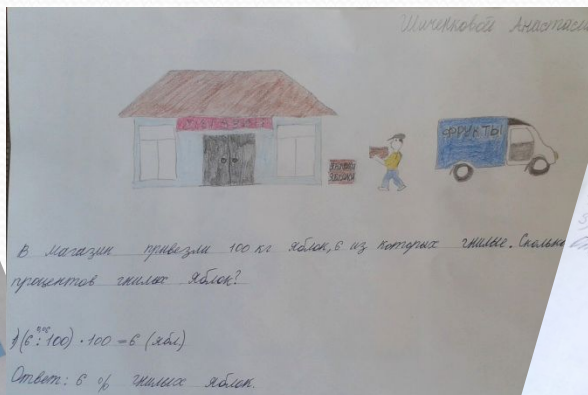 Анастасии
ФРУКТЫ
ЯБЛОКИ
ЯБЛОКИ
В магазин привезли 100 кг яблок, 6 из которых гнилые. Сколько
процентов гнилых яблок?
1) (6 : 100) · 100 = 6 (ябл)
Ответ: 6 % гнилых яблок.